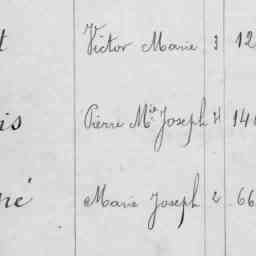 t Victor Marie 3 12
is Pierre Mie Joseph 4 140
né Marie Joseph 2 66